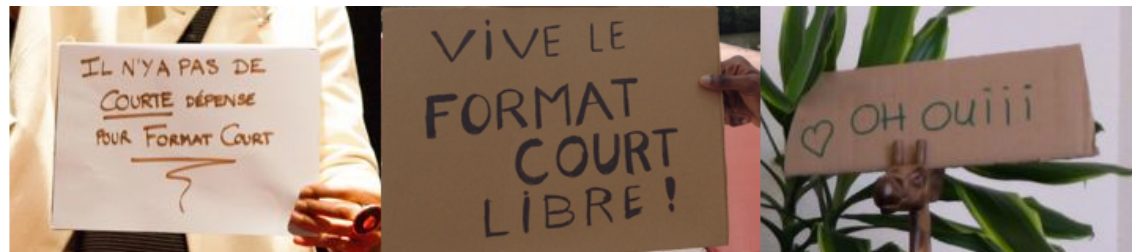 IL N'Y A PAS DE
COURTE DÉPENSE
POUR FORMAT COURT
ViVE LE
FORMAT
COURT
LiBRE !
♡ OH OUiii